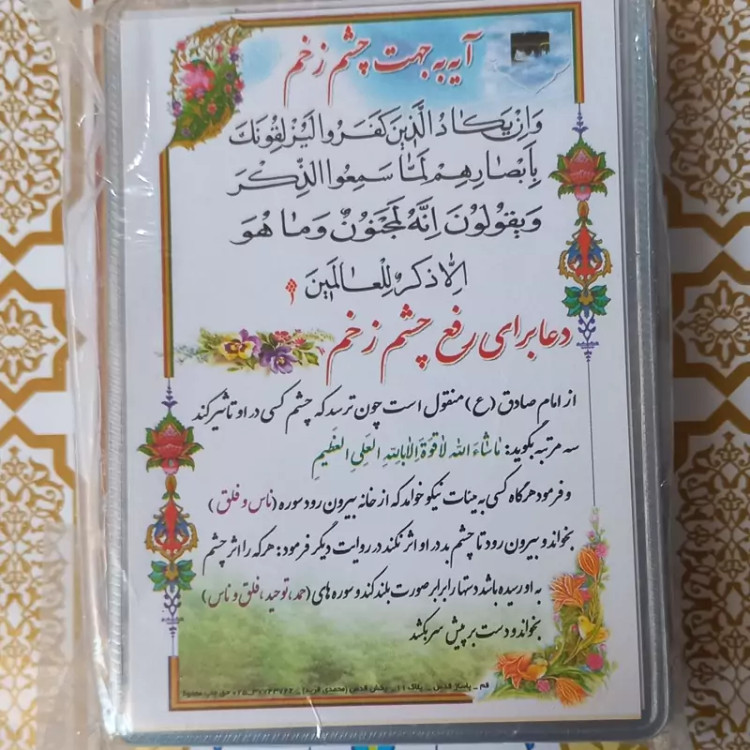 آیه به جهت چشم زخم
وَاِنْ یَکٰادُ الَّذینَ کَفَرُوا لَیُزْلِقُونَکَ
بِاَبْصٰارِهِمْ لَمّٰا سَمِعُوا الذِّکْرَ
وَیَقُولُونَ اِنَّهُ لَمَجْنُونٌ وَمٰا هُوَ
اِلّٰا ذِکْرٌ لِلْعٰالَمینَ
دعا برای رفع چشم زخم
از امام صادق (ع) منقول است چون ترسد که چشم کسی در او تاثیر کند
سه مرتبه بگوید: مٰاشٰاءَ اللهُ لاٰقُوَّةَ اِلاّٰ بِاللهِ العَلِیِ العَظیمِ
و فرمود هرگاه کسی به هیئات نیکو خواهد که از خانه بیرون رود سوره (ناس و فلق)
بخواند و بیرون رود تا چشم بد در او اثر نکند در روایت دیگر فرمود: هر که را اثر چشم
به او رسیده باشد دستها را برابر صورت بلند کند و سوره های (حمد، توحید، فلق و ناس)
بخواند و دست بر پیش سر بکشد
قم _ پاساژ قدس _ پلاک ۱۱۱ پخش قدس (محمدی فرید) _ ۳۷۷۴۳۷۴۴-۰۲۵ حق چاپ محفوظ